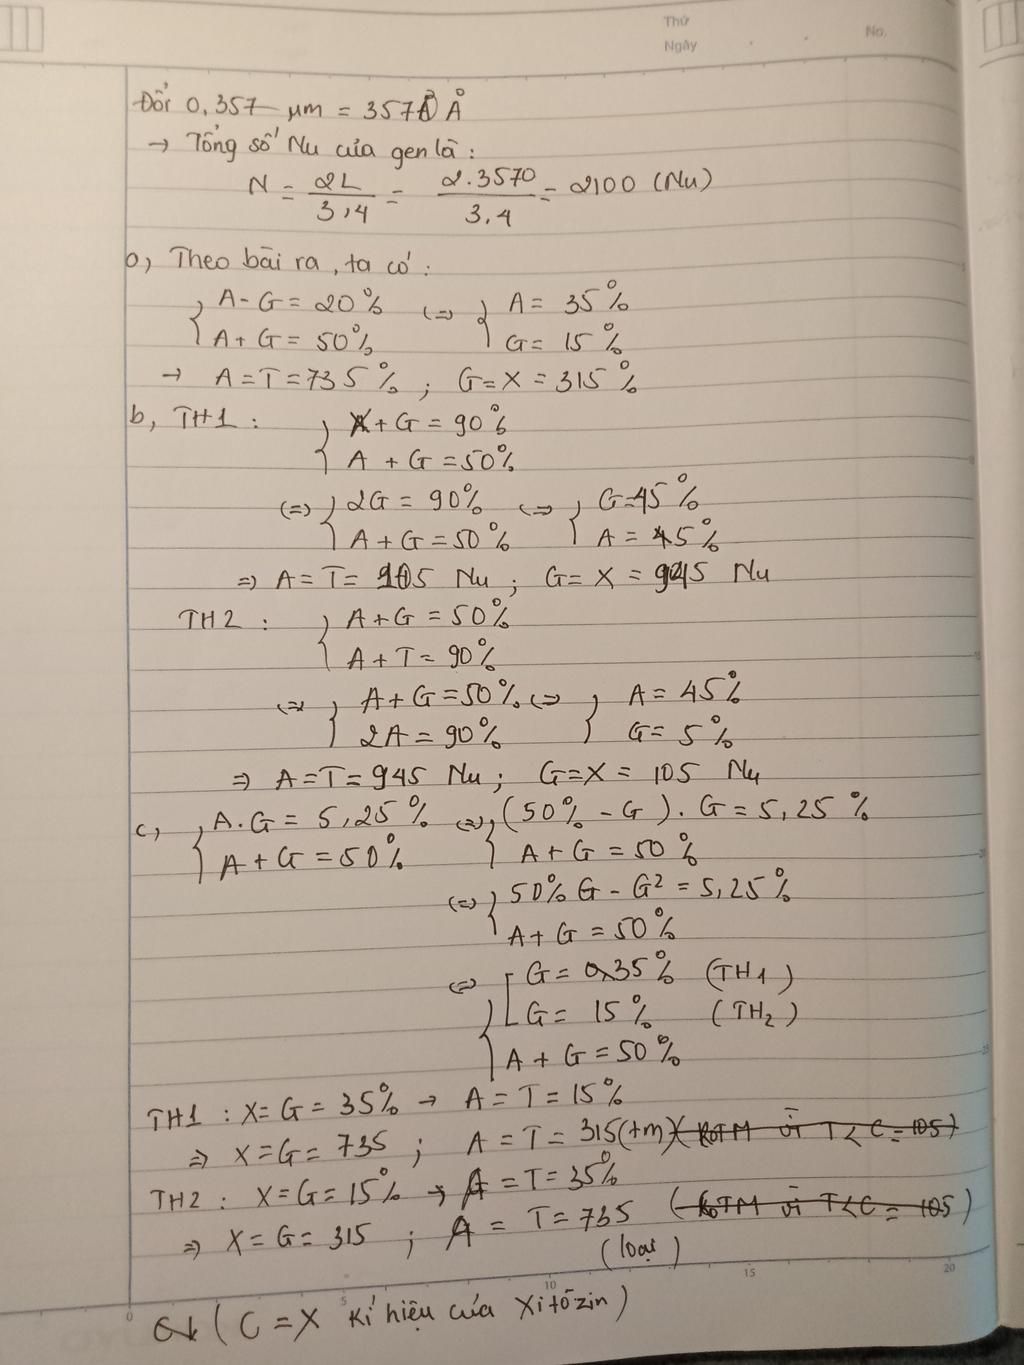 Thứ
Ngày
No.
Đổi 0,357 µm = 3570 Å
→ Tổng số Nu của gen là:
N = 2L/3,4 = 2.3570/3,4 = 2100 (Nu)
a, Theo bài ra, ta có:
{ A - G = 20% (=) { A = 35%
{ A + G = 50% { G = 15%
→ A = T = 735 % ; G = X = 315 %
b, TH1 : { X + G = 90%
{ A + G = 50%
(=) { 2G = 90% (=) { G = 45%
{ A + G = 50% { A = 5%
=> A = T = 105 Nu ; G = X = 945 Nu
TH2 : { A + G = 50%
{ A + T = 90%
(=) { A + G = 50% (=) { A = 45%
{ 2A = 90% { G = 5%
=> A = T = 945 Nu ; G = X = 105 Nu
c, { A . G = 5,25% (=) { (50% - G) . G = 5,25 %
{ A + G = 50% { A + G = 50%
(=) { 50% G - G² = 5,25%
{ A + G = 50%
(=) { [ G = 35% (TH1)
[ G = 15% (TH2)
{ A + G = 50%
TH1 : X = G = 35% → A = T = 15%
=> X = G = 735 ; A = T = 315 (tm) (KoTM vì T < C = 105)
TH2 : X = G = 15% → A = T = 35%
=> X = G = 315 ; A = T = 735 (KoTM vì T < C = 105)
(loại)
5
10
15
20
0
( C = X kí hiệu của Xitôzin )